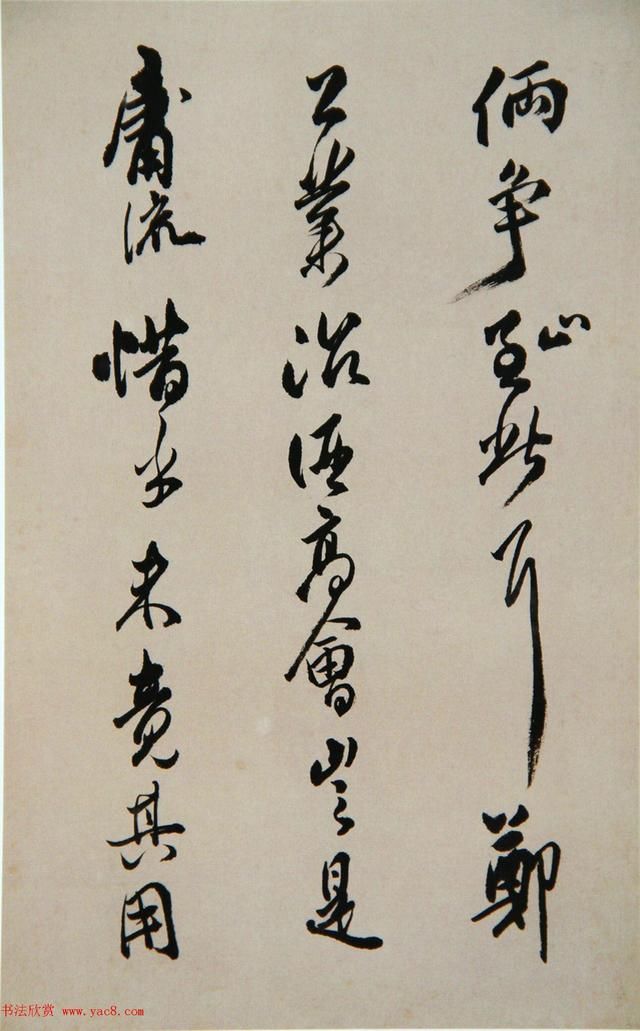 倆争至此耳鄭
公業治酒高會豈是
庸流惜乎未竟其用
书法欣赏 www.yac8.com